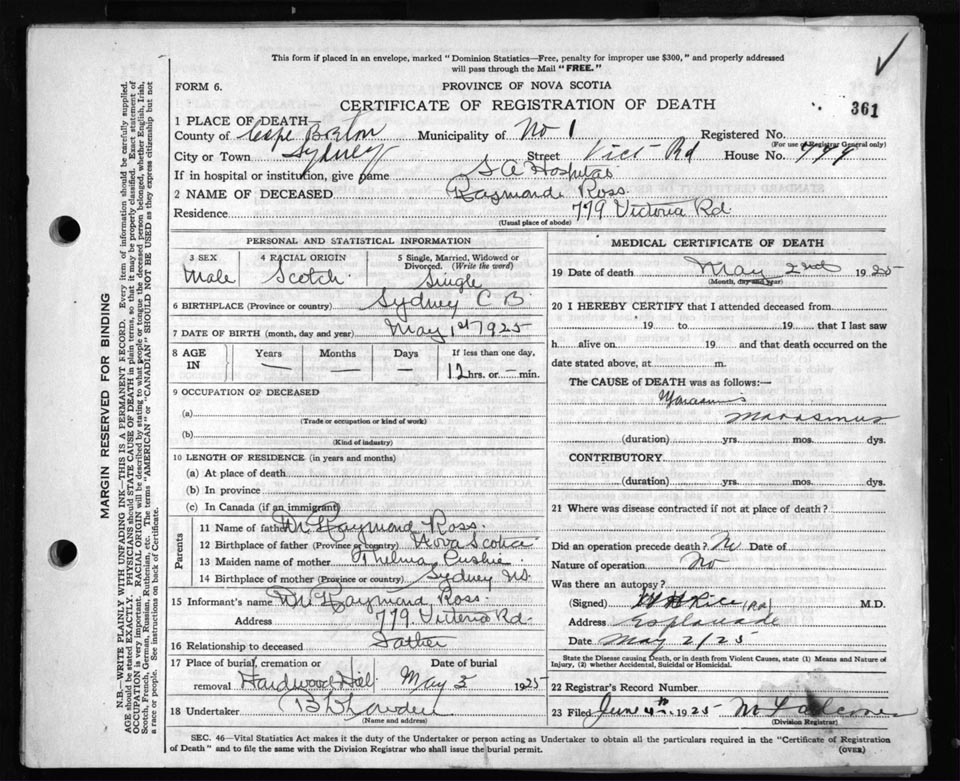 This form if placed in an envelope, marked "Dominion Statistics—Free, penalty for improper use $300," and properly addressed
will pass through the Mail "FREE."
FORM 6.
PROVINCE OF NOVA SCOTIA
CERTIFICATE OF REGISTRATION OF DEATH
361
1 PLACE OF DEATH
County of Cape Breton Municipality of No 1 Registered No.
(For use of Registrar General only)
City or Town Sydney Street Vict Rd House No. 779
If in hospital or institution, give name S A Hospital
2 NAME OF DECEASED Raymond Ross.
Residence 779 Victoria Rd.
(Usual place of abode)
PERSONAL AND STATISTICAL INFORMATION
3 SEX 4 RACIAL ORIGIN 5 Single, Married, Widowed or
Divorced. (Write the word)
Male Scotch Single
6 BIRTHPLACE (Province or country) Sydney C B
7 DATE OF BIRTH (month, day and year) May 1st 1925
8 AGE IN Years Months Days If less than one day,
— — — 12 hrs. or — min.
9 OCCUPATION OF DECEASED
(a)
(Trade or occupation or kind of work)
(b)
(Kind of industry)
10 LENGTH OF RESIDENCE (in years and months)
(a) At place of death
(b) In province
(c) In Canada (if an immigrant)
Parents
11 Name of father Raymond Ross.
12 Birthplace of father (Province or country) Nova Scotia
13 Maiden name of mother Thelma
14 Birthplace of mother (Province or country) Sydney NS.
15 Informant's name Raymond Ross.
Address 779 Victoria Rd.
16 Relationship to deceased Father
17 Place of burial, cremation or Date of burial
removal Hardwood Hill May 3 1925
18 Undertaker
(Name and address)
MEDICAL CERTIFICATE OF DEATH
19 Date of death May 2nd 1925
(Month, day and year)
20 I HEREBY CERTIFY that I attended deceased from
19 to 19 that I last saw
h alive on 19 and that death occurred on the
date stated above, at m.
The CAUSE of DEATH was as follows:—
Marasmus
Marasmus
(duration) yrs. mos. dys.
CONTRIBUTORY
(duration) yrs. mos. dys.
21 Where was disease contracted if not at place of death?
Did an operation precede death? No Date of
Nature of operation No
Was there an autopsy?
(Signed) Rice M.D.
Address Esplanade
Date May 2/25
State the Disease causing Death, or in death from Violent Causes, state (1) Means and Nature of
Injury, (2) whether Accidental, Suicidal or Homicidal.
22 Registrar's Record Number
23 Filed June 4th 1925
(Division Registrar)
SEC. 46—Vital Statistics Act makes it the duty of the Undertaker or person acting as Undertaker to obtain all the particulars required in the "Certificate of Registration
of Death" and to file the same with the Division Registrar who shall issue the burial permit. (OVER)
MARGIN RESERVED FOR BINDING
N.B.—WRITE PLAINLY WITH UNFADING INK—THIS IS A PERMANENT RECORD. Every item of information should be carefully supplied.
AGE should be stated EXACTLY. PHYSICIANS should STATE CAUSE OF DEATH in plain terms, so that it may be properly classified. Exact statement of
OCCUPATION is very important. RACIAL ORIGIN will be described by stating to what people or tongue the deceased person belonged, whether English, Irish,
Scotch, French, German, Russian, Ruthenian, etc. The terms "AMERICAN" or "CANADIAN" SHOULD NOT BE USED as they express citizenship but not
a race or people. See instructions on back of Certificate.